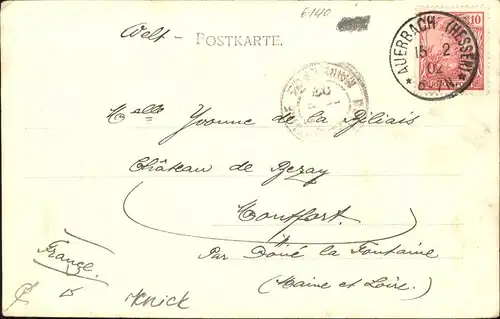 6140
Welt- POSTKARTE.
AUERBACH (HESSEN)
15 2
02
10
Melle Yvonne de la Biliais
Château de Bezay
Montfort.
Par Doué la Fontaine
(Maine et Loire.)
France.
Knick